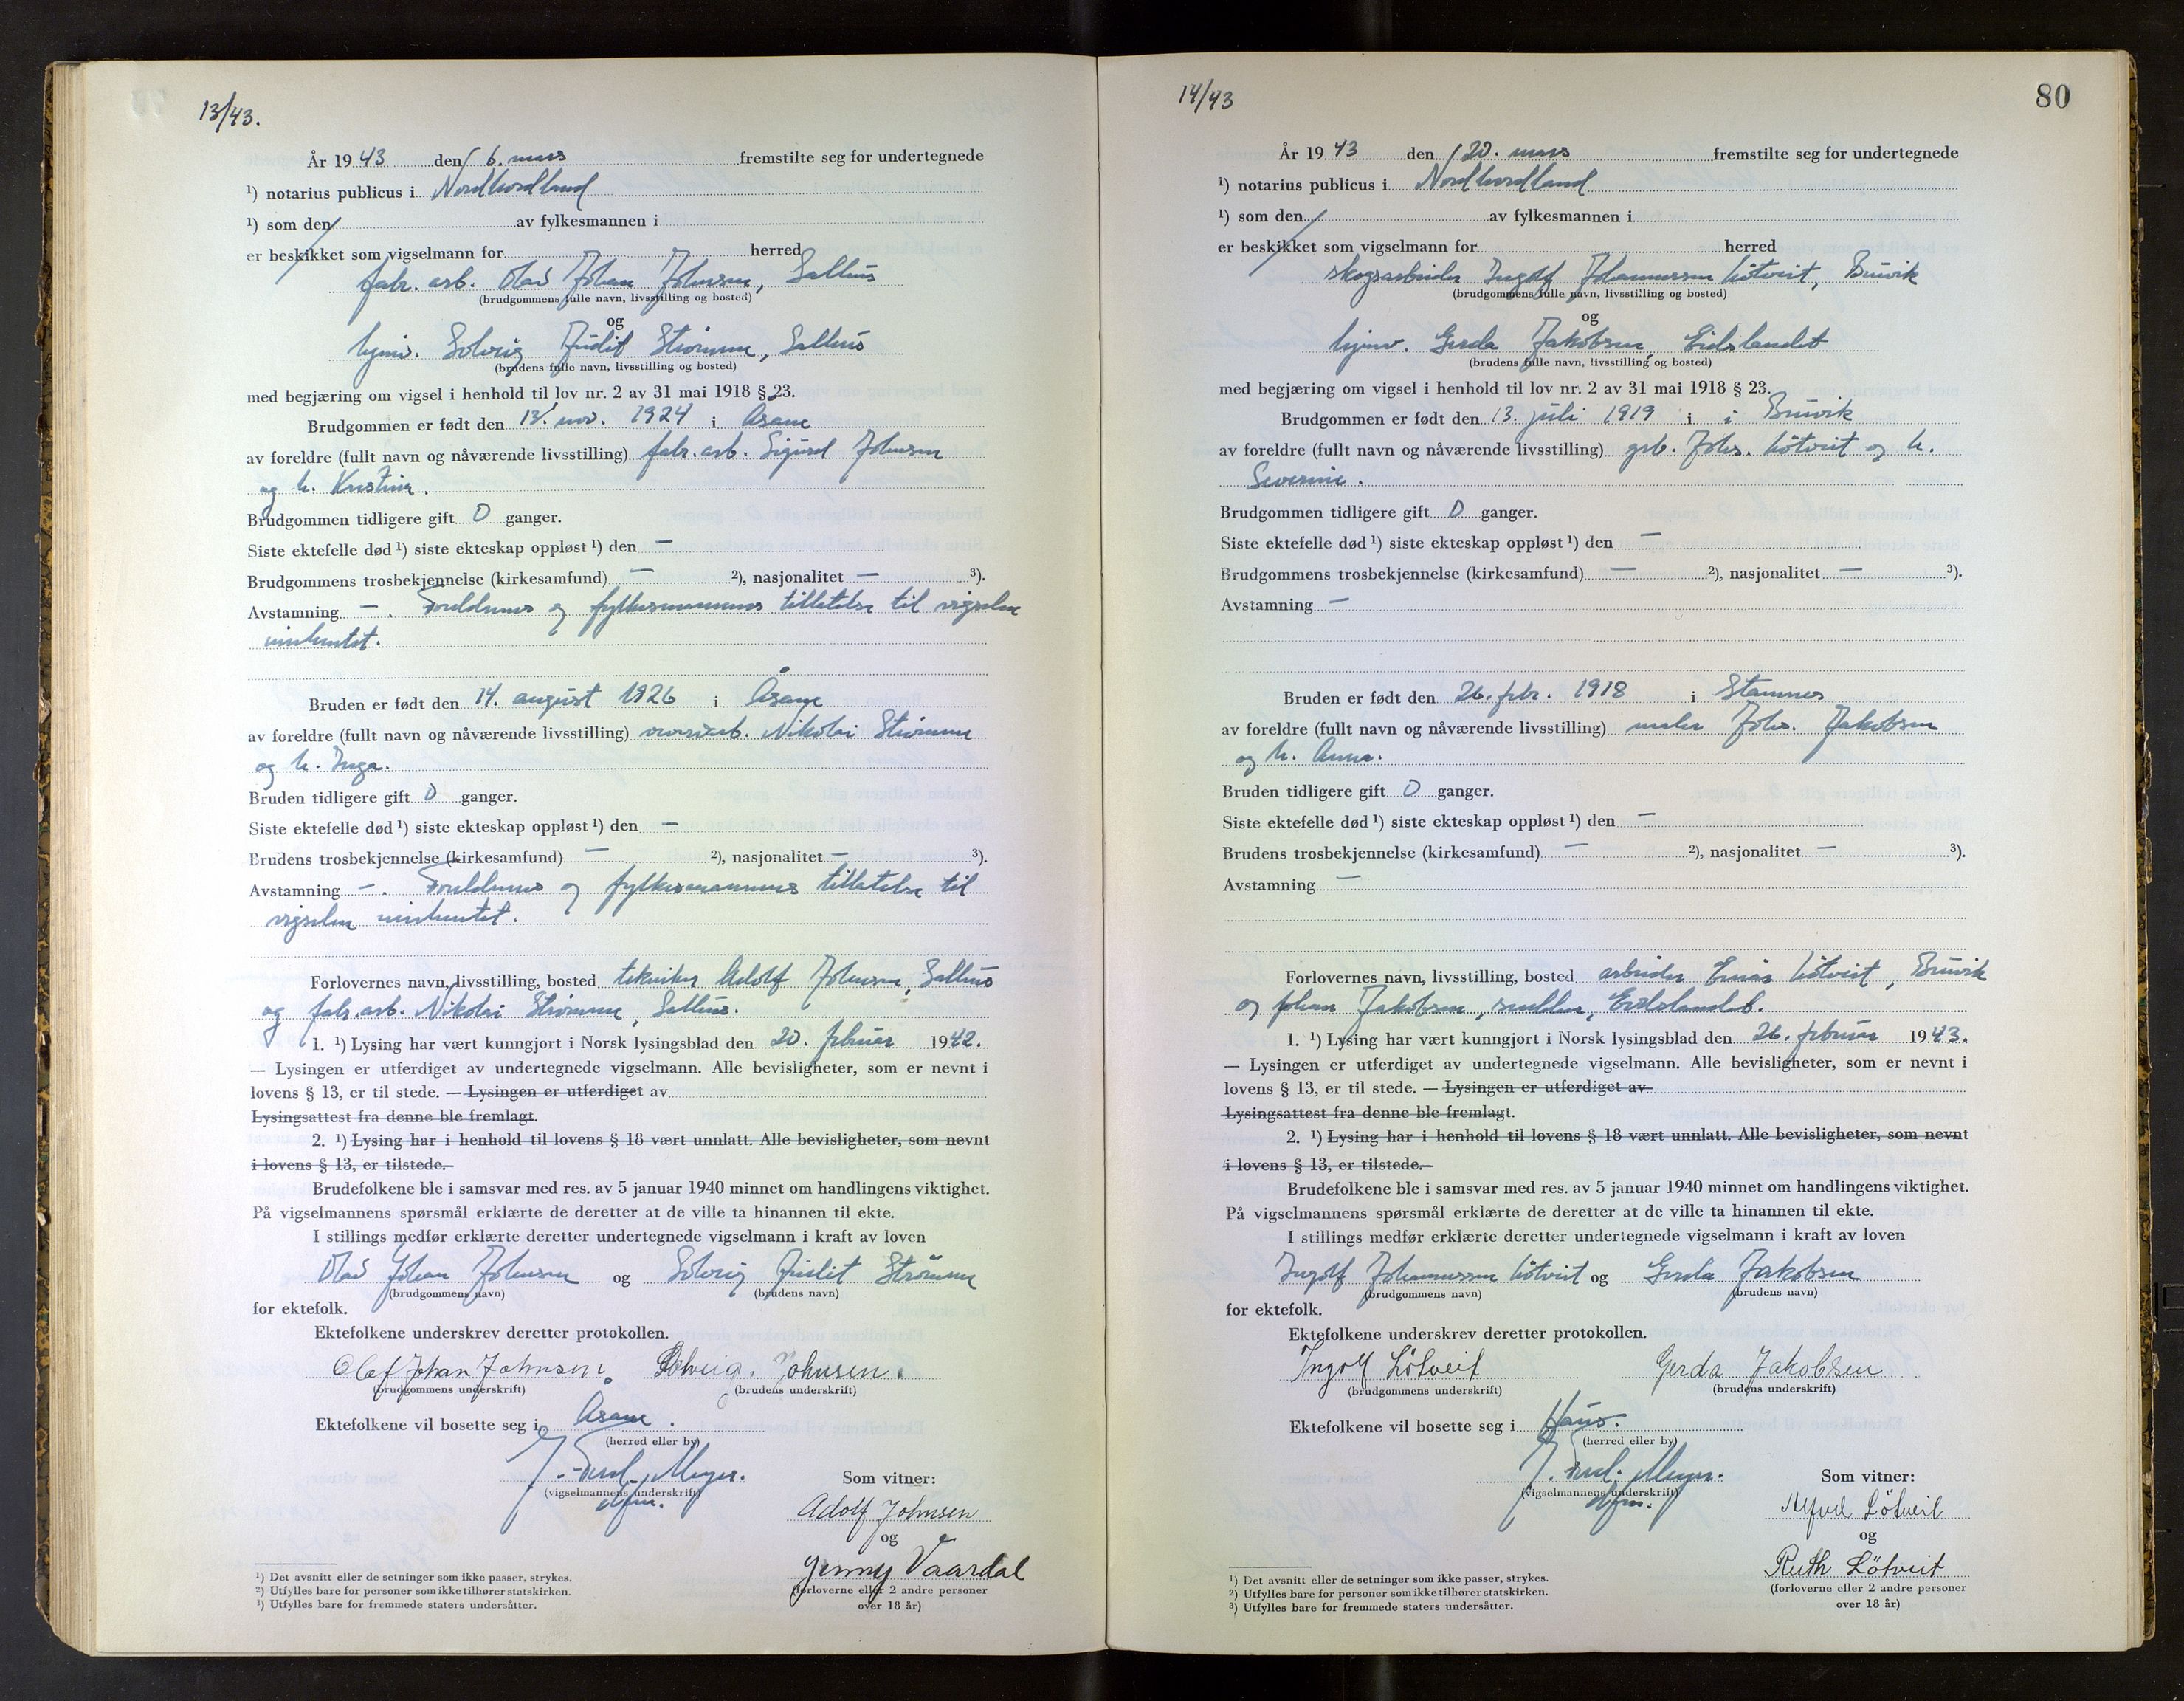 13/43.
År 1943 den 6. mars fremstilte seg for undertegnede
¹) notarius publicus i Nordhordland
¹) som den av fylkesmannen i
er beskikket som vigselmann for herred
fabr. arb. Olav Johan Johnsen, Salhus
(brudgommens fulle navn, livsstilling og bosted)
og
hjmv. Solveig Judit Strømme, Salhus
(brudens fulle navn, livsstilling og bosted)
med begjæring om vigsel i henhold til lov nr. 2 av 31 mai 1918 § 23.
Brudgommen er født den 13. nov. 1924 i Åsane
av foreldre (fullt navn og nåværende livsstilling) fabr. arb. Sigurd Johnsen
og h. Kristina.
Brudgommen tidligere gift 0 ganger.
Siste ektefelle død ¹) siste ekteskap oppløst ¹) den —
Brudgommens trosbekjennelse (kirkesamfund) — ²), nasjonalitet — ³).
Avstamning — . Foreldrenes og fylkesmannens tillatelse til vigselen
innhentet.
Bruden er født den 14. august 1926 i Åsane
av foreldre (fullt navn og nåværende livsstilling) Nikolai Strømme
og h. Inga.
Bruden tidligere gift 0 ganger.
Siste ektefelle død ¹) siste ekteskap oppløst ¹) den —
Brudens trosbekjennelse (kirkesamfund) — ²), nasjonalitet — ³).
Avstamning — . Foreldrenes og fylkesmannens tillatelse til
vigselen innhentet.
Forlovernes navn, livsstilling, bosted tekniker Adolf Johnsen, Salhus
og fabr. arb. Nikolai Strømme, Salhus.
1. ¹) Lysing har vært kunngjort i Norsk lysingsblad den 20. februar 1942.
— Lysingen er utferdiget av undertegnede vigselmann. Alle bevisligheter, som er nevnt i
lovens § 13, er til stede. — Lysingen er utferdiget av
Lysingsattest fra denne ble fremlagt.
2. ¹) Lysing har i henhold til lovens § 18 vært unnlatt. Alle bevisligheter, som nevnt
i lovens § 13, er tilstede.
Brudefolkene ble i samsvar med res. av 5 januar 1940 minnet om handlingens viktighet.
På vigselmannens spørsmål erklærte de deretter at de ville ta hinannen til ekte.
I stillings medfør erklærte deretter undertegnede vigselmann i kraft av loven
Olav Johan Johnsen og Solveig Judit Strømme
(brudgommens navn) (brudens navn)
for ektefolk.
Ektefolkene underskrev deretter protokollen.
Olaf Johan Johnsen. Solveig. Johnsen.
(brudgommens underskrift) (brudens underskrift)
Ektefolkene vil bosette seg i Åsane.
(herred eller by)
Meyer.
(vigselmannens underskrift)
dfm.
Som vitner:
Adolf Johnsen
og
Jenny Vaardal
(forloverne eller 2 andre personer
over 18 år)
¹) Det avsnitt eller de setninger som ikke passer, strykes.
²) Utfylles bare for personer som ikke tilhører statskirken.
³) Utfylles bare for fremmede staters undersåtter.
14/43
80
År 1943 den 20. mars fremstilte seg for undertegnede
¹) notarius publicus i Nordhordland
¹) som den av fylkesmannen i
er beskikket som vigselmann for herred
skogsarbeider Ingolf Johannessen Løtveit, Bruvik
(brudgommens fulle navn, livsstilling og bosted)
og
hjmv. Gerda Jakobsen, Eidslandet
(brudens fulle navn, livsstilling og bosted)
med begjæring om vigsel i henhold til lov nr. 2 av 31 mai 1918 § 23.
Brudgommen er født den 13. juli 1919 i i Bruvik
av foreldre (fullt navn og nåværende livsstilling) grb. Johs. Løtveit og h.
Severine.
Brudgommen tidligere gift 0 ganger.
Siste ektefelle død ¹) siste ekteskap oppløst ¹) den —
Brudgommens trosbekjennelse (kirkesamfund) — ²), nasjonalitet — ³).
Avstamning —
Bruden er født den 26. febr. 1918 i Stamnes
av foreldre (fullt navn og nåværende livsstilling) maler Johs. Jakobsen
og h. Anna.
Bruden tidligere gift 0 ganger.
Siste ektefelle død ¹) siste ekteskap oppløst ¹) den —
Brudens trosbekjennelse (kirkesamfund) — ²), nasjonalitet — ³).
Avstamning —
Forlovernes navn, livsstilling, bosted arbeider Einar Løtveit, Bruvik
og Johan Jakobsen, Eidslandet.
1. ¹) Lysing har vært kunngjort i Norsk lysingsblad den 26. februar 1943.
— Lysingen er utferdiget av undertegnede vigselmann. Alle bevisligheter, som er nevnt i
lovens § 13, er til stede. — Lysingen er utferdiget av
Lysingsattest fra denne ble fremlagt.
2. ¹) Lysing har i henhold til lovens § 18 vært unnlatt. Alle bevisligheter, som nevnt
i lovens § 13, er tilstede.
Brudefolkene ble i samsvar med res. av 5 januar 1940 minnet om handlingens viktighet.
På vigselmannens spørsmål erklærte de deretter at de ville ta hinannen til ekte.
I stillings medfør erklærte deretter undertegnede vigselmann i kraft av loven
Ingolf Johannessen Løtveit og Gerda Jakobsen
(brudgommens navn) (brudens navn)
for ektefolk.
Ektefolkene underskrev deretter protokollen.
Ingolf Lötveit Gerda Jakobsen
(brudgommens underskrift) (brudens underskrift)
Ektefolkene vil bosette seg i Haus.
(herred eller by)
Meyer.
(vigselmannens underskrift)
dfm.
Som vitner:
Alfred Lötveit
og
Ruth Lötveit
(forloverne eller 2 andre personer
over 18 år)
¹) Det avsnitt eller de setninger som ikke passer, strykes.
²) Utfylles bare for personer som ikke tilhører statskirken.
³) Utfylles bare for fremmede staters undersåtter.